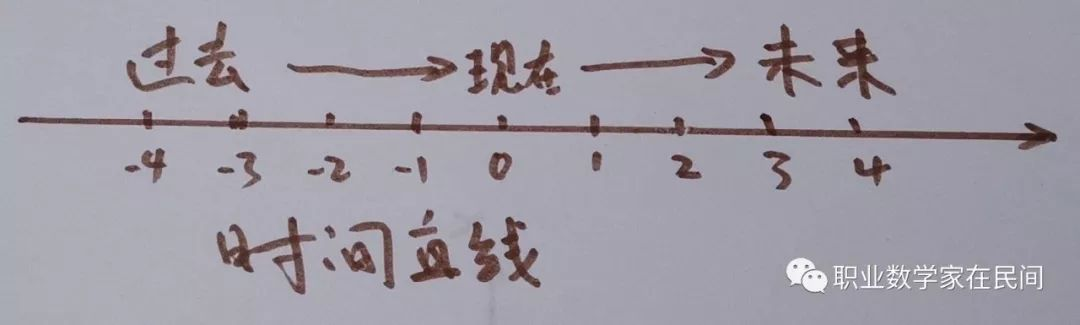 过去 → 现在 → 未来
-4 -3 -2 -1 0 1 2 3 4
时间直线
职业数学家在民间